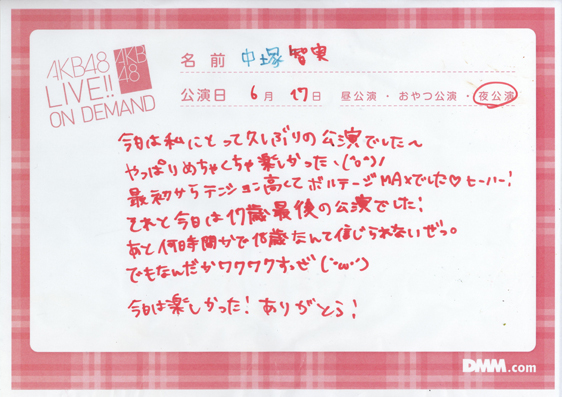 AKB48
LIVE!!
ON DEMAND
AKB
48
名前 中塚智実
公演日 6月17日 昼公演・おやつ公演・夜公演
今日は私にとって久しぶりの公演でした〜
やっぱりめちゃくちゃ楽しかった、(°o°)!
最初からテンション高くてボルテージMAXでした♡ヒーハー!
それと今日は17歳最後の公演でした!
あと何時間かで18歳なんて信じられないぜっ。
でもなんだかワクワクすっぜ(・ω・)
今日は楽しかった!ありがとう!
DMM.com